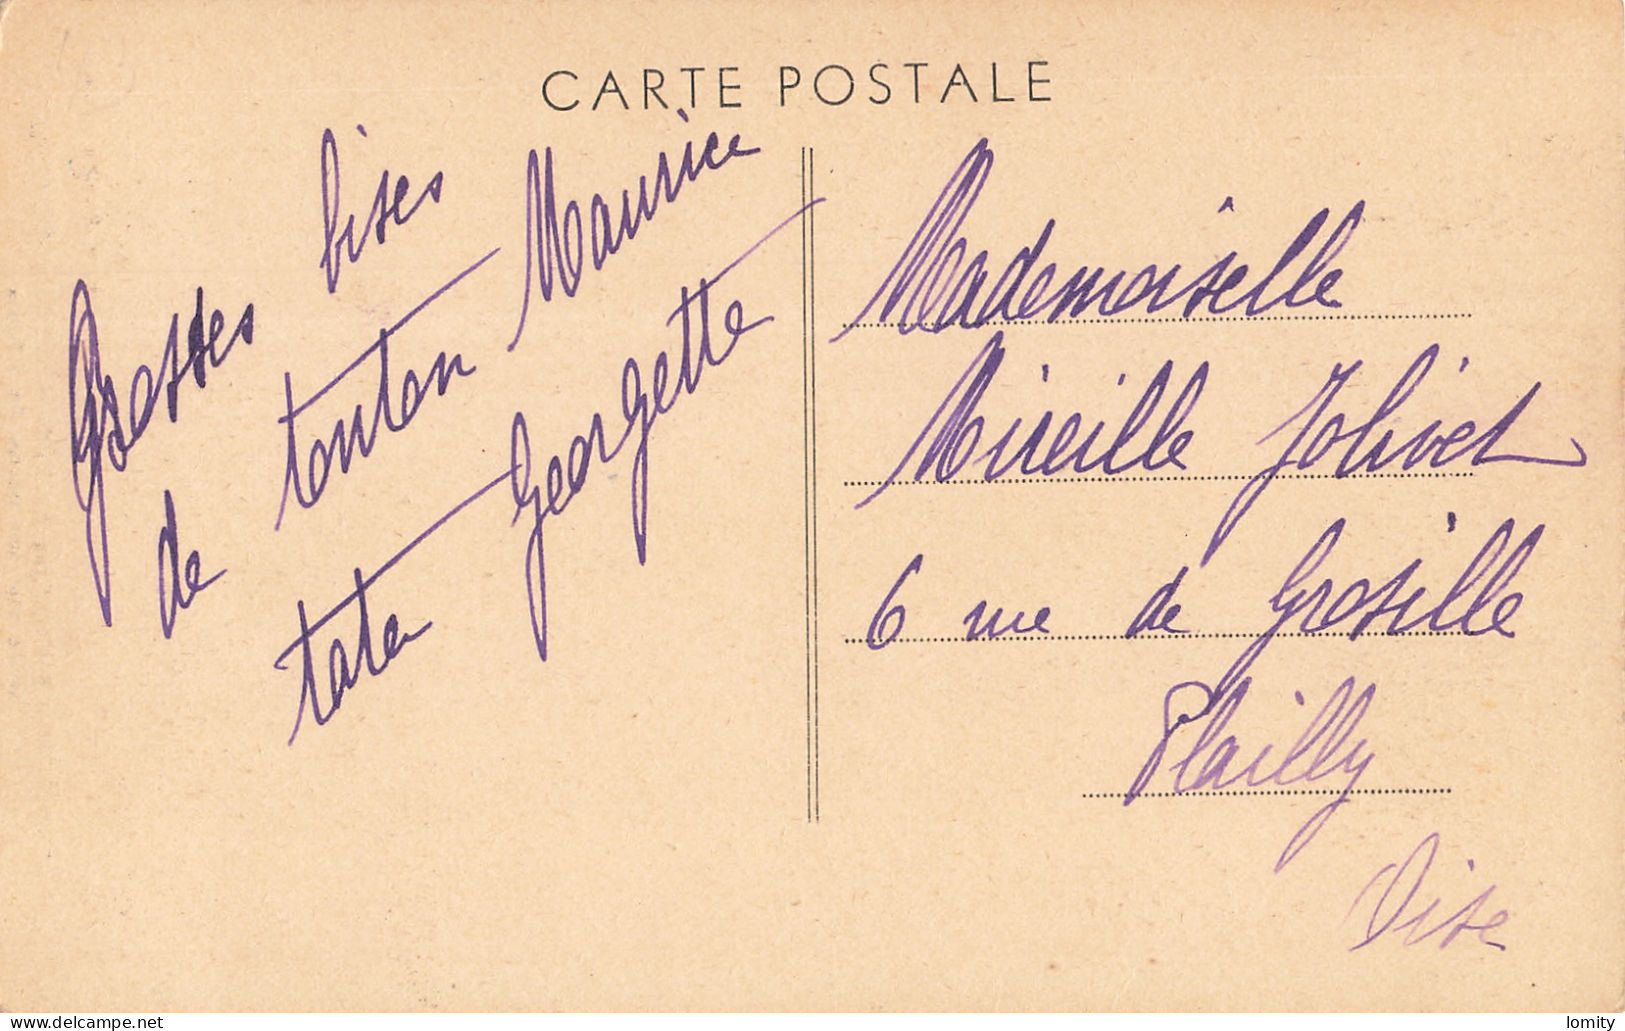 CARTE POSTALE
Grosses bises
de tonton Maurice
tata Georgette
Mademoiselle
Mireille Jolivet
6 rue de Gresille
Plailly
Oise
www.delcampe.net
lomity